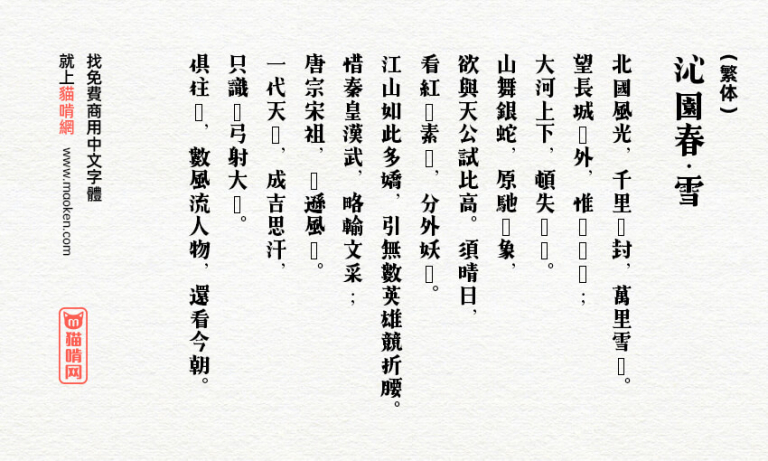 (繁体)
沁園春·雪
北國風光，千里▯封，萬里雪▯。
望長城▯外，惟▯▯▯；
大河上下，頓失▯▯。
山舞銀蛇，原馳▯象，
欲與天公試比高。須晴日，
看紅▯素▯，分外妖▯。
江山如此多嬌，引無數英雄競折腰。
惜秦皇漢武，略輸文采；
唐宗宋祖，▯遜風▯。
一代天▯，成吉思汗，
只識▯弓射大▯。
俱往▯，數風流人物，還看今朝。
找免費商用中文字體
就上貓啃網 www.mooken.com
猫啃网